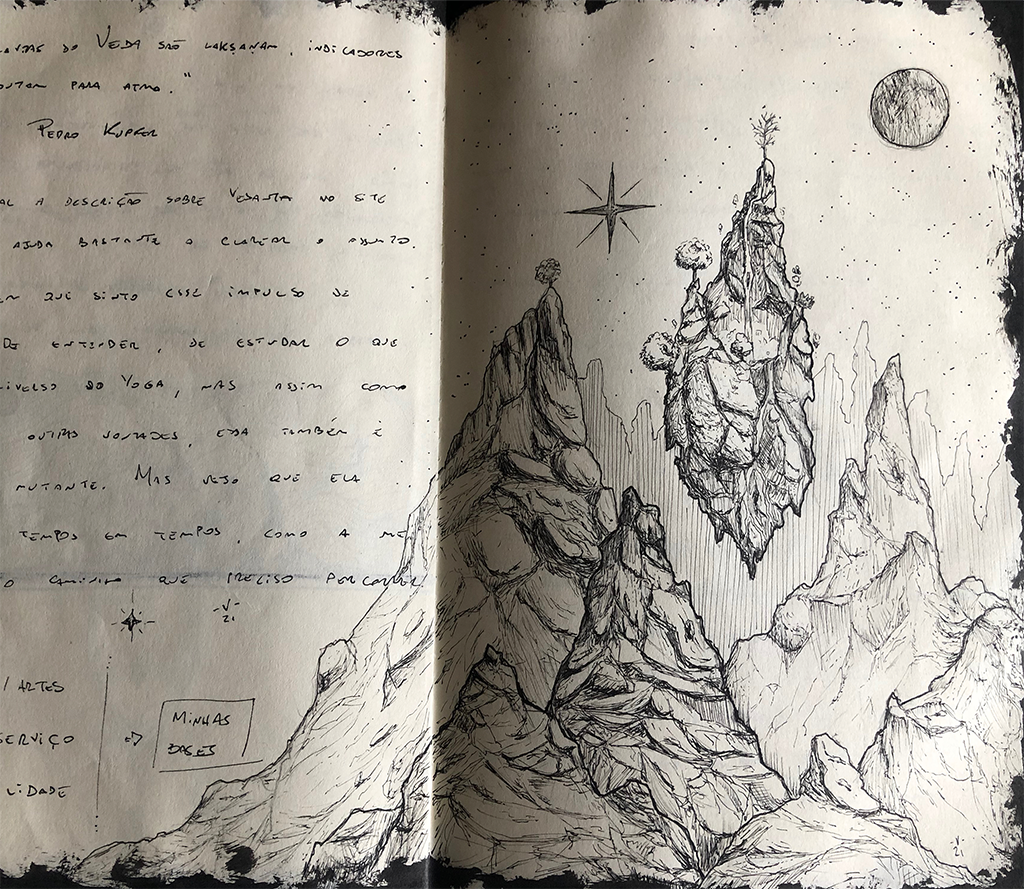 DO VEDA SÃO LAKSANAM, INDICADORES
PARA ATMA."
PEDRO KUPFER
A DESCRIÇÃO SOBRE VEDANTA NO SITE
AJUDA BASTANTE A CLAREAR O ASSUNTO.
QUE SINTO ESSE IMPULSO DE
DE ENTENDER, DE ESTUDAR O QUE
DO YOGA, MAS ASSIM COMO
OUTRAS VONTADES, ESSA TAMBÉM É
MUTANTE. MAS VEJO QUE ELA
TEMPOS EM TEMPOS, COMO A ME
O CAMINHO QUE PRECISO PERCORRER
-V-
21
/ ARTES
SERVIÇO
LIDADE
MINHAS
BASES
-V-
21